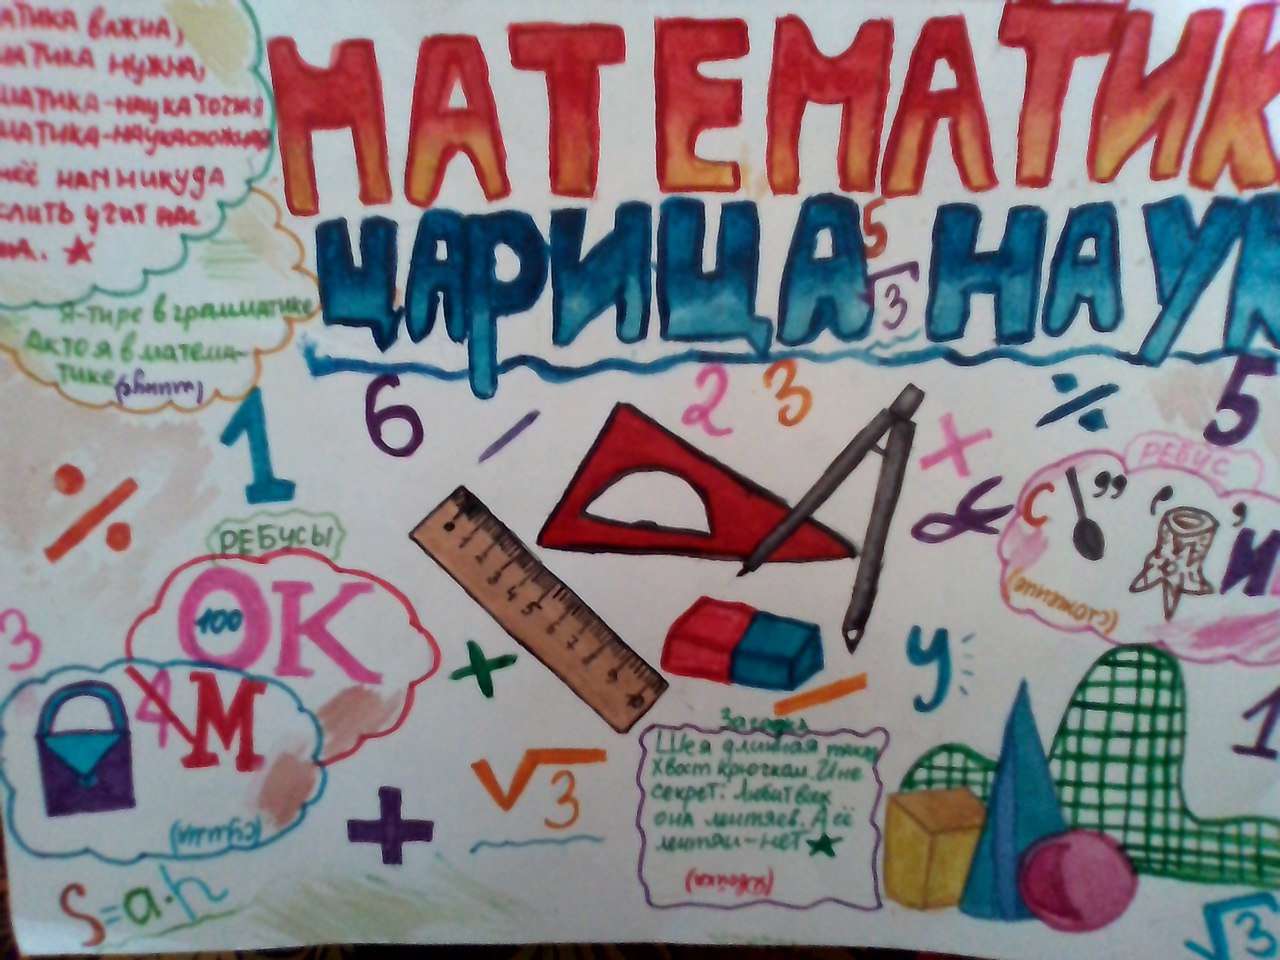 АТИКА ВАЖНА,
АТИКА НУЖНА,
МАТИКА-НАУКА ТОЧНАЯ
МАТИКА-НАУКА СЛОЖНАЯ
НЕЁ НАМ НИКУДА
СЛИТЬ УЧИТ НАС
НА.
МАТЕМАТИК
ЦАРИЦА НАУК
5
√3
Я-тире в грамматике
А кто я в матема-
тике
(минус)
1
6
2
3
5
РЕБУСЫ
100
ОК
3
4
М
(сумма)
РЕБУС
С
,,
,
,
И
(сложение)
1 2 3 4 5 6 7 8 9 10
+
у
√3
+
S=a·h
Загадка
Шея длинная такая
Хвост крючком. И не
секрет: Любит всех
она лентяев. А её
лентяи-нет
1
√3